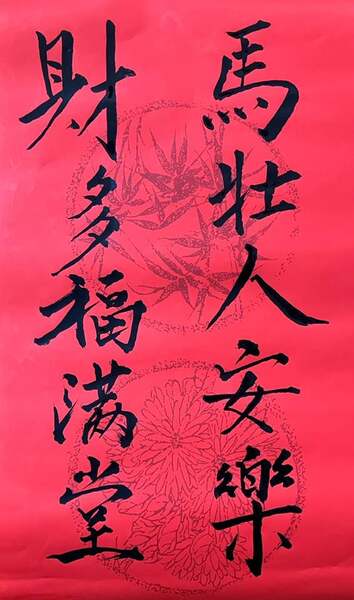 馬壮人安樂
財多福满堂